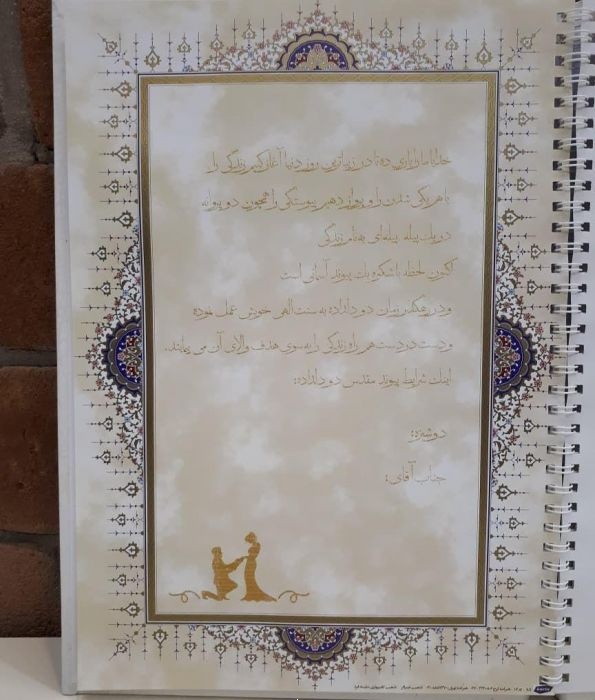 خدایا ما را یاری ده تا در زیباترین روز دنیا آغازگر زندگی را
با هم یکی شدن را و پرواز دهیم پیوستگی را همچون دو پروانه
در یک پیله پیله‌ای به نام زندگی
اکنون لحظه باشکوه یک پیوند آسمانی است
و در این زمان دو دلداده به سنت الهی خویش عمل نموده
و دست در دست هم راه زندگی را به سوی هدف والای آن می پیمایند.
اینک شرایط پیوند مقدس دو دلداده:
دوشیزه:
جناب آقای: